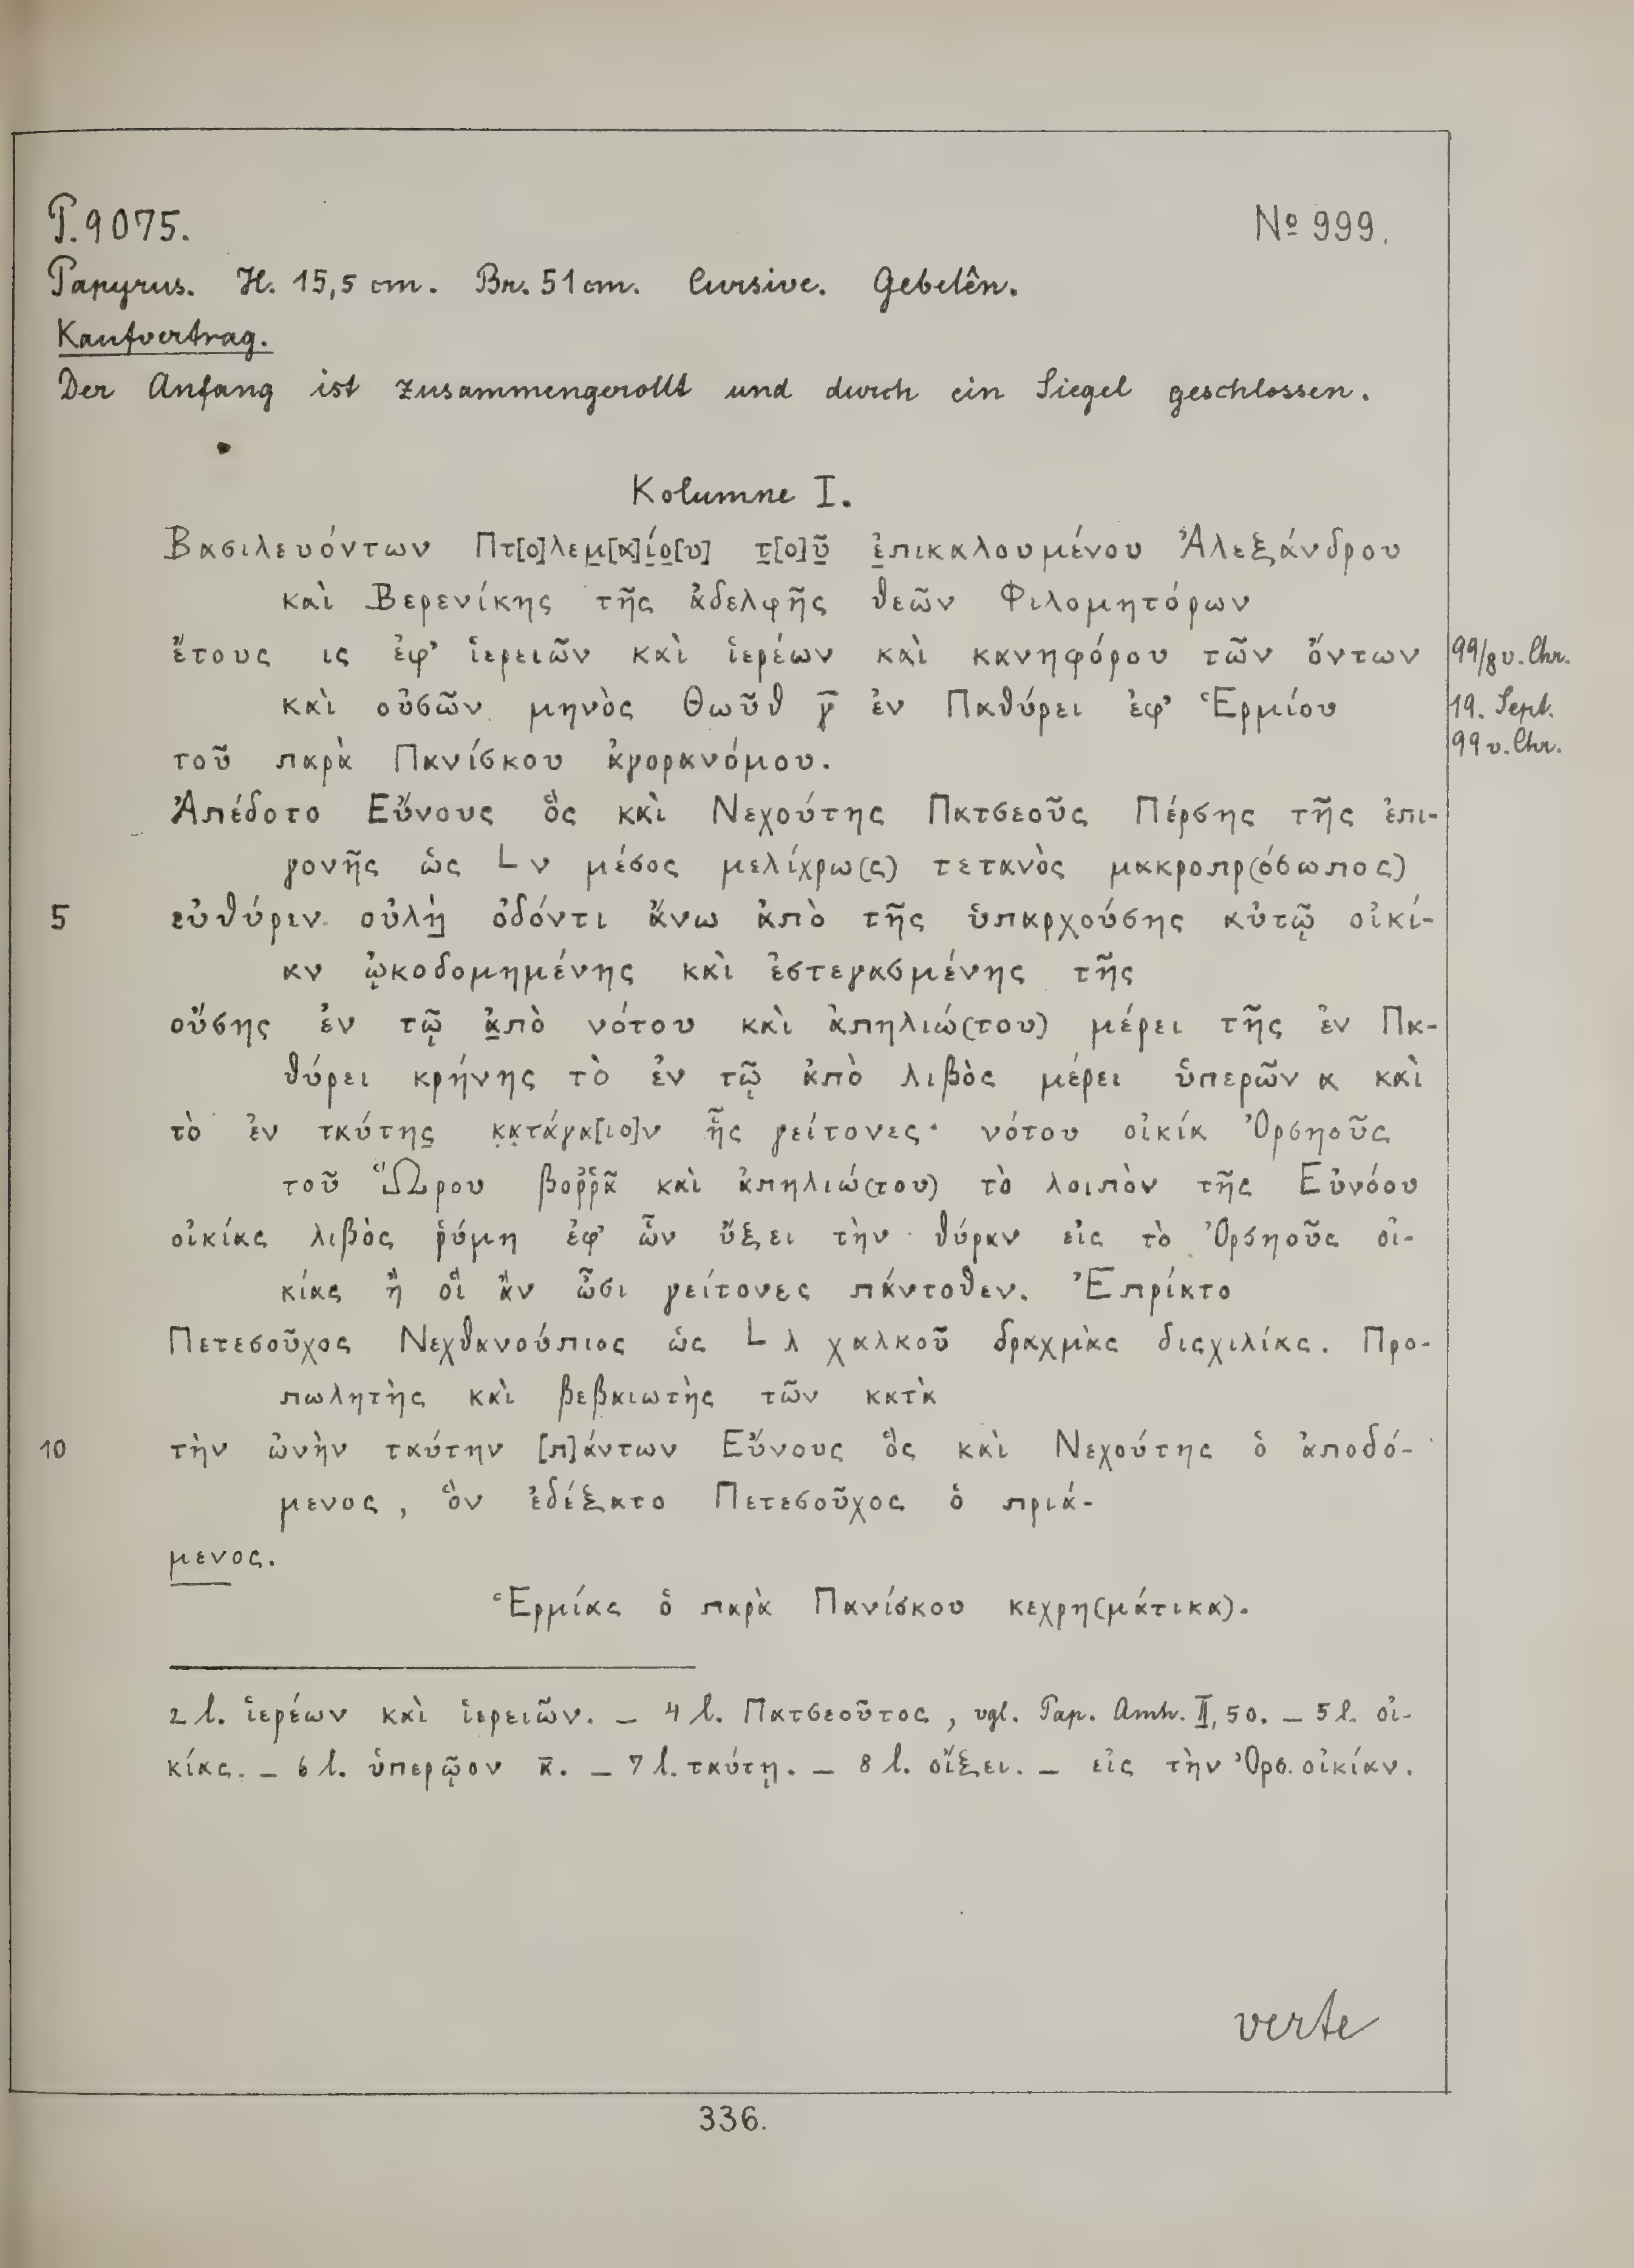 P. 9075. № 999.
Papyrus. H. 15,5 cm. Br. 51 cm. Cursive. Gebelên.
Kaufvertrag.
Der Anfang ist zusammengerollt und durch ein Siegel geschlossen.
Kolumne I.
Βασιλευόντων Πτ[ο]λεμ̣[α]ί̣ο̣[υ] τ̣[ο]ῦ̣ ἐ̣πικαλουμένου Ἀλεξάνδρου
καὶ Βερενίκης τῆς ἀδελφῆς θεῶν Φιλομητόρων
ἔτους ις ἐφ’ ἱερειῶν καὶ ἱερέων καὶ κανηφόρου τῶν ὄντων 99/8 v. Chr.
καὶ οὐσῶν μηνὸς Θωῦθ γ̅ ἐν Παθύρει ἐφ’ Ἑρμίου 19. Sept.
99 v. Chr.
τοῦ παρὰ Πανίσκου ἀγορανόμου.
Ἀπέδοτο Εὔνους ὃς καὶ Νεχούτης Πατσεοῦς Πέρσης τῆς ἐπι-
γονῆς ὡς L ν μέσος μελίχρω(ς) τετανὸς μακροπρ(όσωπος)
5 εὐθύριν οὐλὴ̣ ὀδόντι ἄνω ἀπὸ τῆς ὑπαρχούσης αὐτῷ οἰκί-
αν ᾠκοδομημένης καὶ ἐστεγασμένης τῆς
οὔσης ἐν τῷ ἀ̣πὸ νότου καὶ ἀπηλιώ(του) μέρει τῆς ἐν Πα-
θύρει κρήνης τὸ ἐν τῷ ἀπὸ λιβὸς μέρει ὑπερῶν α καὶ
τὸ ἐν ταύτης̣ κ̣α̣τάγα[ιο]ν ἧς γείτονες· νότου οἰκία Ὀρσηοῦς
τοῦ Ὥρου βοῤῥᾶ καὶ ἀπηλιώ(του) τὸ λοιπὸν τῆς Εὐνόου
οἰκίας λιβὸς ῥύμη ἐφ’ ὧν ὔξει τὴν θύραν εἰς τὸ Ὀρσηοῦς οἰ-
κίας ἢ οἳ ἂν ὦσι γείτονες πάντοθεν. Ἐπρίατο
Πετεσοῦχος Νεχθανούπιος ὡς L λ χαλκοῦ δραχμὰς διςχιλίας. Προ-
πωλητὴς καὶ βεβαιωτὴς τῶν κατὰ
10 τὴν ὠνὴν ταύτην [π]άντων Εὔνους ὃς καὶ Νεχούτης ὁ ἀποδό-
μενος, ὃν ἐδέξατο Πετεσοῦχος ὁ πριά-
μενος.
Ἑρμίας ὁ παρὰ Πανίσκου κεχρη(μάτικα).
2 l. ἱερέων καὶ ἱερειῶν. — 4 l. Πατσεοῦτος, vgl. Pap. Amh. II, 50. — 5 l. οἰ-
κίας. — 6 l. ὑπερῷον α̅. — 7 l. ταύτῃ. — 8 l. οἴξει. — εἰς τὴν Ὀρσ. οἰκίαν.
verte
336.